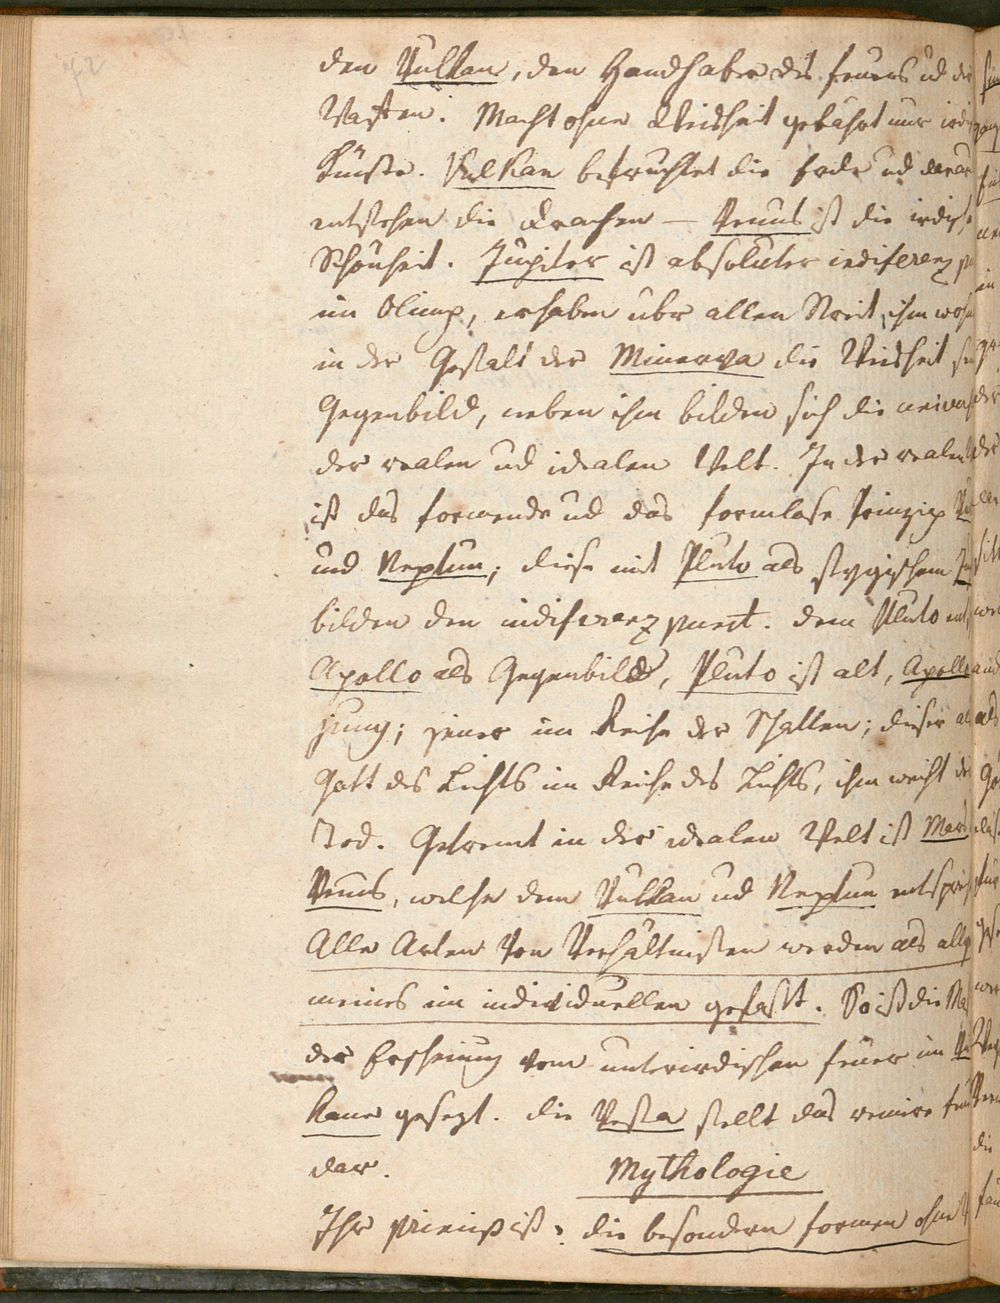 den Vulkan, den Handhaber des feuers ud der
Waffen. Macht ohne Weisheit gebährt nur irdi
Künste. Vulkan befruchtet die Erde ud daraus
entstehen die Drachen — Venus ist die irdische
Schönheit. Jupiter ist absoluter indiferenz p
im Olimp, erhaben ubr allen Streit, ihm wohn
in der Gestalt der Minerva die Weisheit se
Gegenbild, neben ihm bilden sich die
der realen ud idealen Welt. In der realen
ist das formende ud das formlose Prinzip Vu
und Neptun; diese mit Pluto als stygischem Ju
bilden den indiferenz punct. dem Pluto ents
Apollo als Gegenbild, Pluto ist alt, Apollo
jung; jener im Reiche der Schatten; dieser al
Gott des Lichts im Reiche des Lichts, ihm weicht de
Tod. Getrent in der idealen Welt ist Mars
Venus, welche dem Vulkan ud Neptun entsprech
Alle Arten von Verhältnißen werden als allge
meines im individuellen gefaßt. So ist die Ma
der Erscheinung vom unterirdischen feuer im Vul
kane gesezt. die Vesta stellt das reinere feu
dar.
Mythologie
Ihr ist: die besondern formen ohne